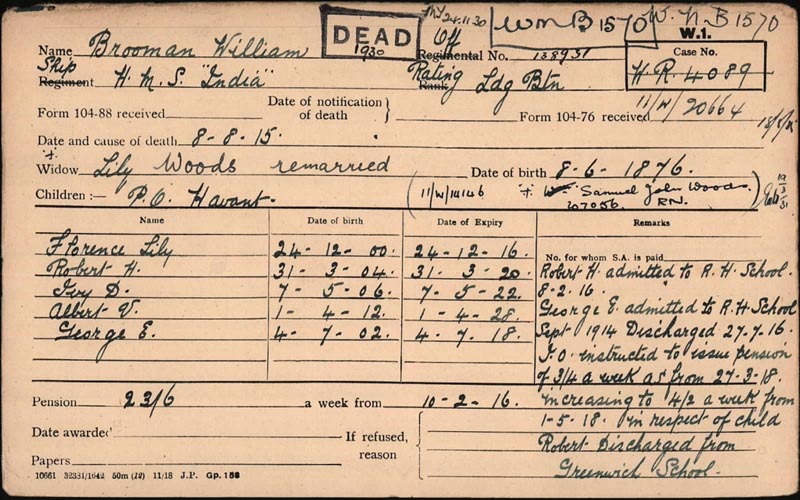 DEAD
1930
24.11.30
Off
WNB 1570
W.N.B 1570
W.1.
Name Brooman William
Regimental No. 138931
Case No.
H.R. 4089
Ship
Regiment H.M.S. "India"
Rating
Rank Ldg Btn
Form 104-88 received
Date of notification of death
Form 104-76 received
11/W/20664
Date and cause of death 8-8-15.
Widow Lily Woods remarried
Date of birth 8-6-1876.
Children :— P.O. Havant.
11/W/14146
Samuel John Woods
RN.
Name Date of birth Date of Expiry Remarks
No. for whom S.A. is paid
Florence Lily 24-12-00. 24-12-16.
Robert H. 31-3-04. 31-3-20.
Ivy D. 7-5-06. 7-5-22.
Albert V. 1-4-12. 1-4-28.
George E. 4-7-02. 4-7-18.
Robert H. admitted to R.H. School.
8-2-16.
George E. admitted to R.H School
Sept 1914 Discharged 27-7-16.
I.O. instructed to issue pension
of 3/4 a week as from 27-3-18.
increasing to 4/2 a week from
1-5-18. in respect of child
Robert Discharged from
Greenwich School.
Pension 23/6 a week from 10-2-16.
Date awarded
If refused, reason
Papers
10661 32331/1642 50m (12) 11/18 J.P. Gp. 156